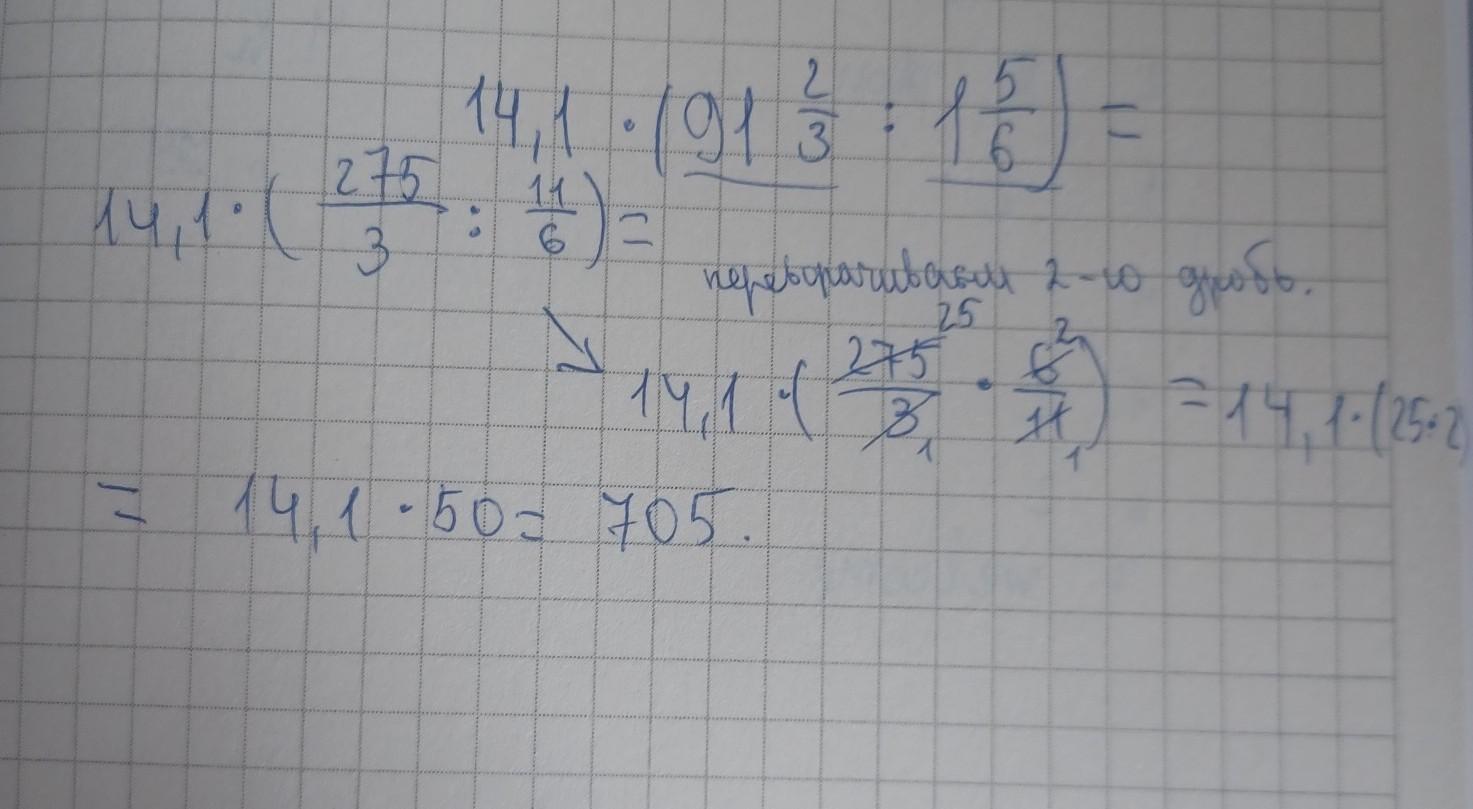 14,1 · (91 2/3 : 1 5/6) =
14,1 · (275/3 : 11/6) =
переворачиваем 2-ю дробь.
14,1 · (275/3 · 6/11) = 14,1 · (25·2)
25 2
1 1
= 14,1 · 50 = 705.